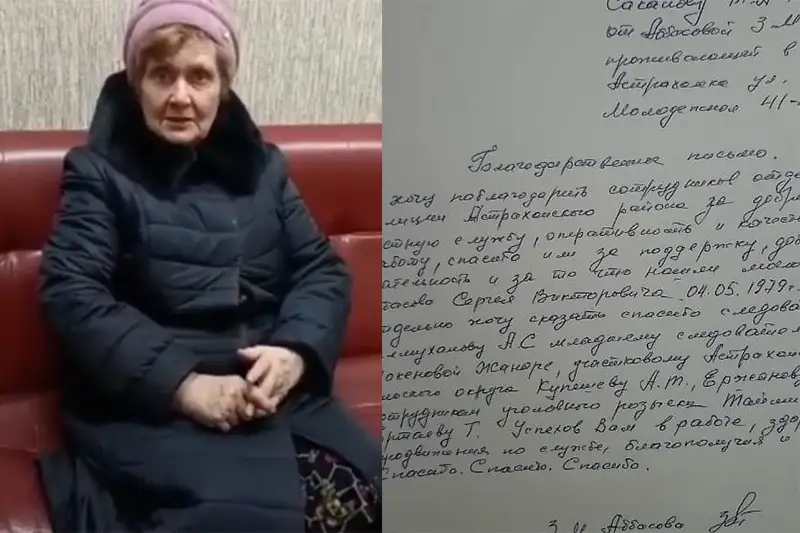 Сакалову
от Аббасовой З.М
проживающей в
Астраханка ул.
Молодежная 41-
Благодарственное письмо.
хочу поблагодарить сотрудников отде
лиции Астраханского района за добро
стную службу, оперативность и качеств
аботу, спасибо им за поддержку, доб
ательность и за то что нашли моего
Сергея Викторовича 04.05.1979г.
тдельно хочу сказать спасибо следова
А.С младшему следовател
Жанаре, участковому Астрахан
ского округа Купешеву А.Т., Ержанову
трудникам уголовного розыска
Т. Успехов Вам в работе, здор
родвижения по службе, благополучия и
Спасибо. Спасибо. Спасибо.
З.М Аббасова